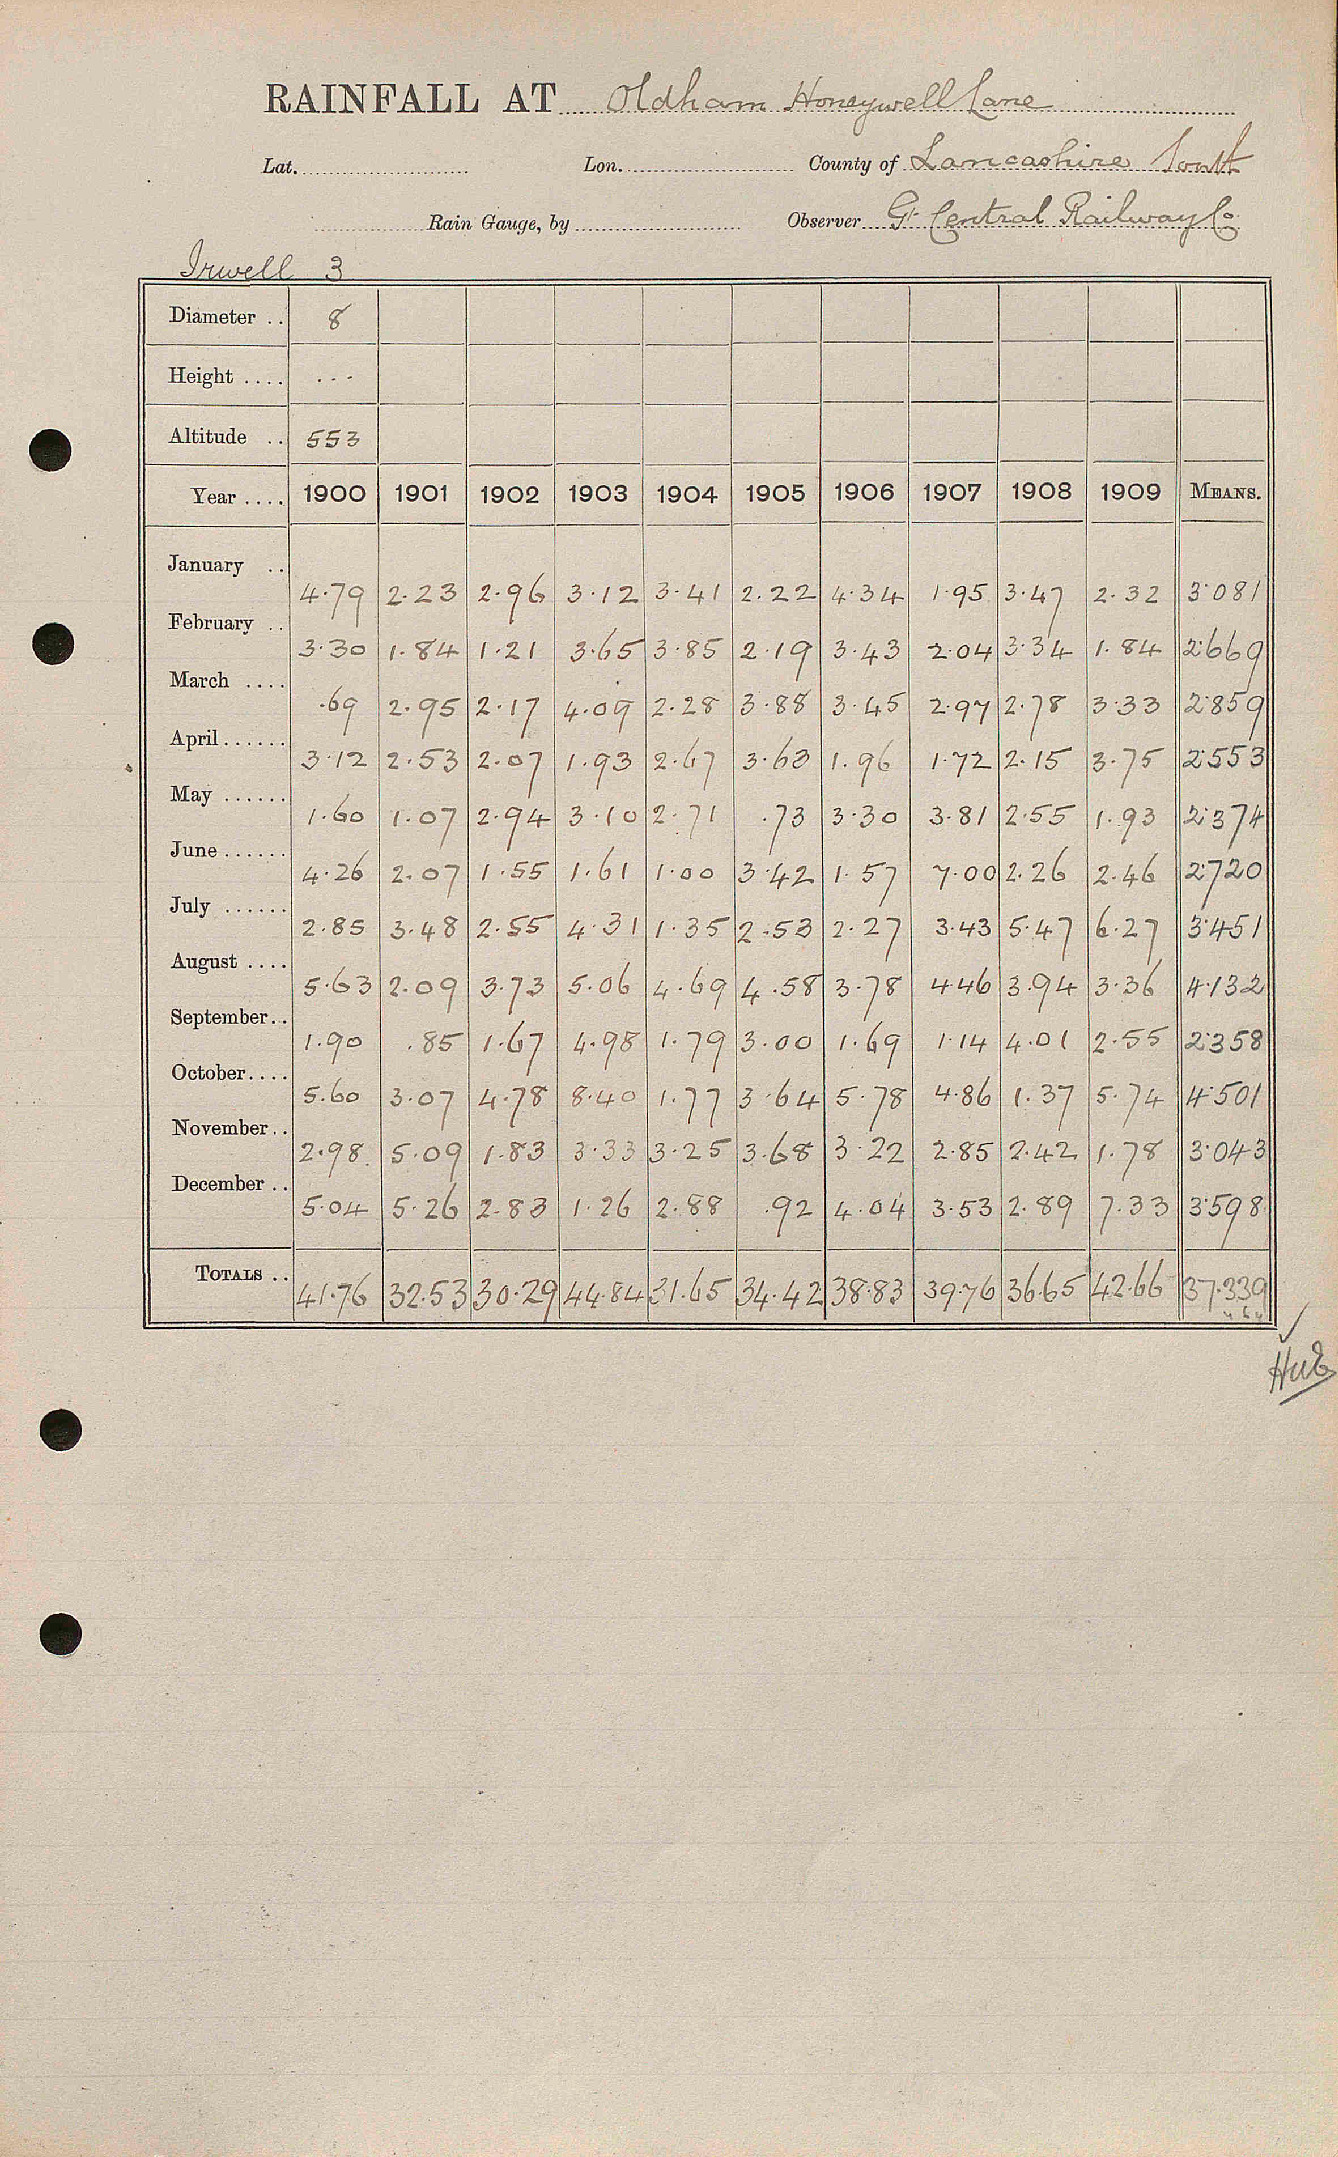 RAINFALL AT Oldham Honeywell Lane
Lat. Lon. County of Lancashire South
Rain Gauge, by Observer Gt Central Railway Co
Irwell 3
Diameter .. 8
Height .... ...
Altitude .. 553
Year .... 1900 1901 1902 1903 1904 1905 1906 1907 1908 1909 MEANS.
January .. 4.79 2.23 2.96 3.12 3.41 2.22 4.34 1.95 3.47 2.32 3.081
February .. 3.30 1.84 1.21 3.65 3.85 2.19 3.43 2.04 3.34 1.84 2.669
March .... .69 2.95 2.17 4.09 2.28 3.88 3.45 2.97 2.78 3.33 2.859
April...... 3.12 2.53 2.07 1.93 2.67 3.63 1.96 1.72 2.15 3.75 2.553
May ...... 1.60 1.07 2.94 3.10 2.71 .73 3.30 3.81 2.55 1.93 2.374
June ...... 4.26 2.07 1.55 1.61 1.00 3.42 1.57 7.00 2.26 2.46 2.720
July ...... 2.85 3.48 2.55 4.31 1.35 2.53 2.27 3.43 5.47 6.27 3.451
August .... 5.63 2.09 3.73 5.06 4.69 4.58 3.78 4.46 3.94 3.36 4.132
September.. 1.90 .85 1.67 4.98 1.79 3.00 1.69 1.14 4.01 2.55 2.358
October.... 5.60 3.07 4.78 8.40 1.77 3.64 5.78 4.86 1.37 5.74 4.501
November.. 2.98 5.09 1.83 3.33 3.25 3.68 3.22 2.85 2.42 1.78 3.043
December .. 5.04 5.26 2.83 1.26 2.88 .92 4.04 3.53 2.89 7.33 3.598
TOTALS .. 41.76 32.53 30.29 44.84 31.65 34.42 38.83 39.76 36.65 42.66 37.339